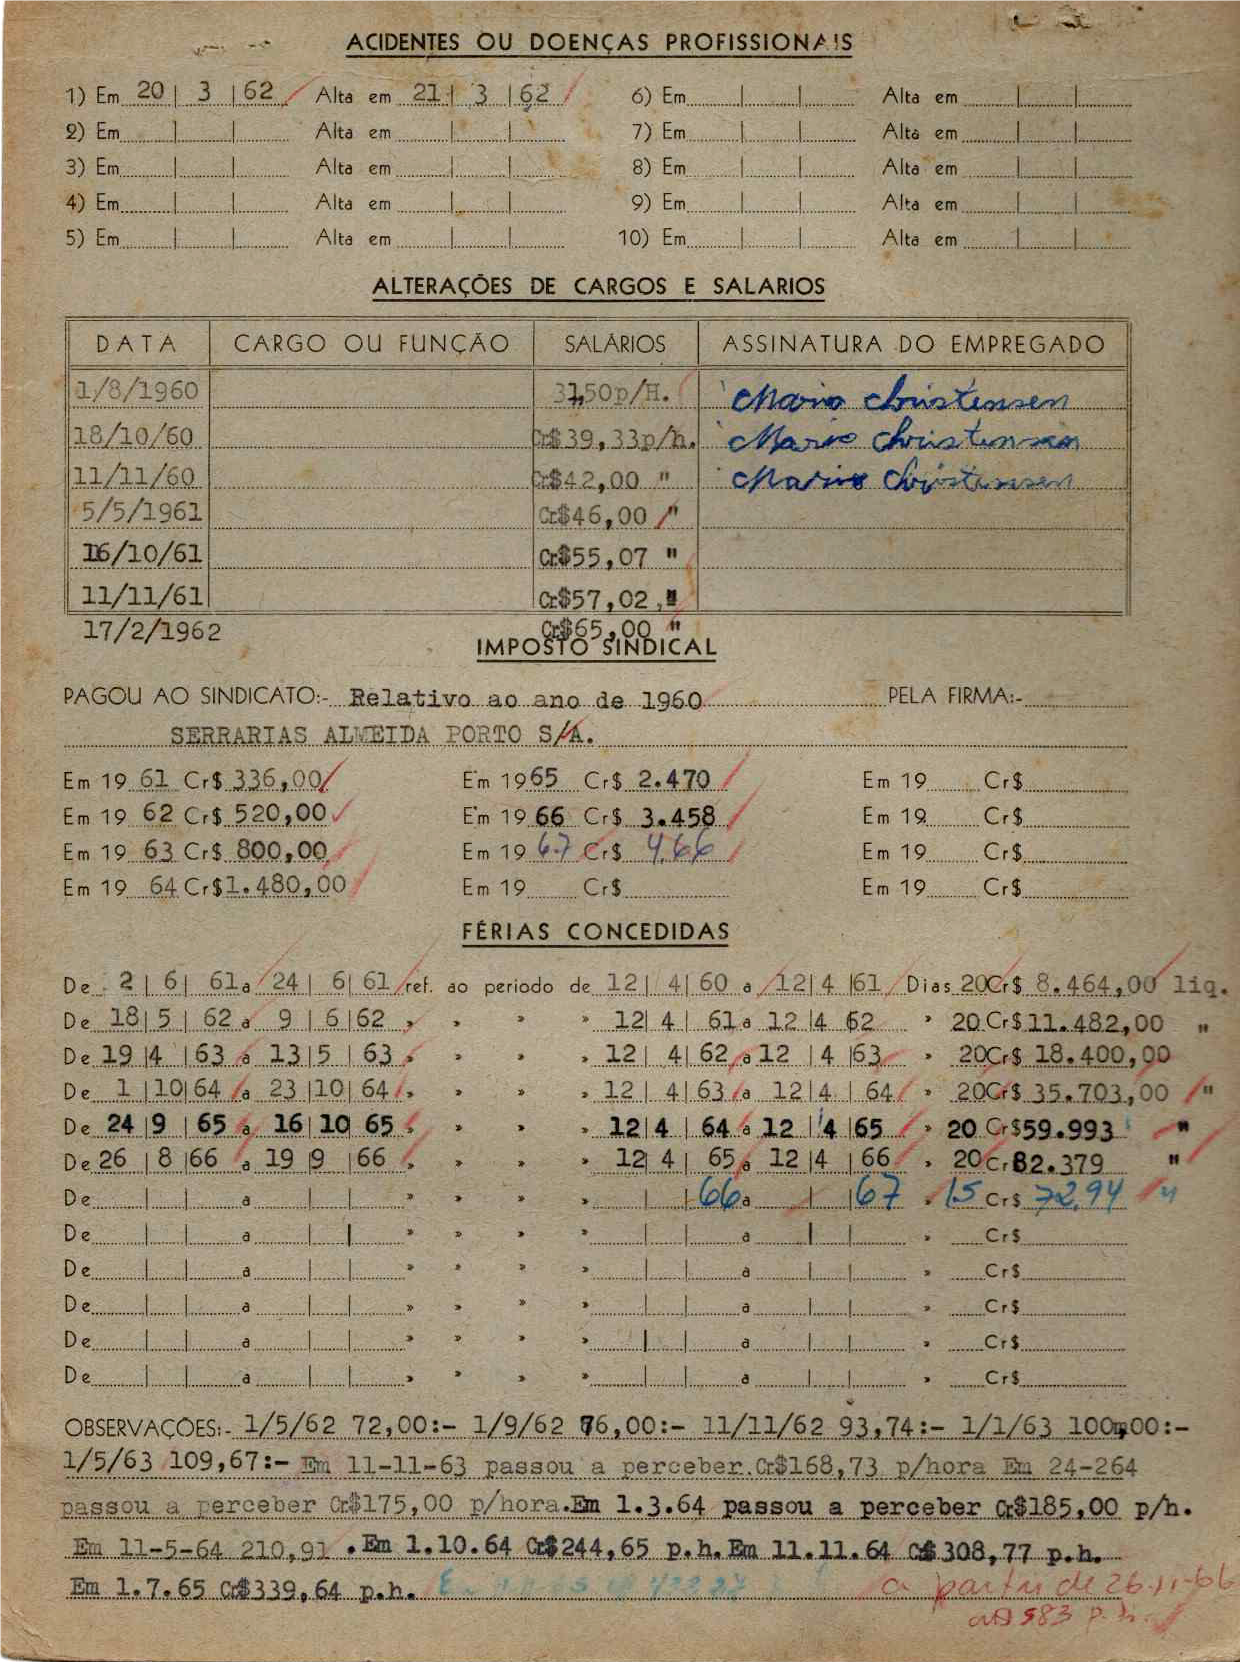 ACIDENTES OU DOENÇAS PROFISSIONAIS
1) Em 20 | 3 | 62 Alta em 21 | 3 | 62 6) Em Alta em
2) Em Alta em 7) Em Alta em
3) Em Alta em 8) Em Alta em
4) Em Alta em 9) Em Alta em
5) Em Alta em 10) Em Alta em
ALTERAÇÕES DE CARGOS E SALARIOS
DATA CARGO OU FUNÇÃO SALÁRIOS ASSINATURA DO EMPREGADO
1/8/1960 31,50p/H. Mario Christensen
18/10/60 Cr$39,33p/h. Mario Christensen
11/11/60 Cr$42,00 " Mario Christensen
5/5/1961 Cr$46,00 "
16/10/61 Cr$55,07 "
11/11/61 Cr$57,02 "
17/2/1962 Cr$65,00 "
IMPOSTO SINDICAL
PAGOU AO SINDICATO:- Relativo ao ano de 1960 PELA FIRMA:-
SERRARIAS ALMEIDA PORTO S/A.
Em 19 61 Cr$ 336,00 Em 19 65 Cr$ 2.470 Em 19 Cr$
Em 19 62 Cr$ 520,00 Em 19 66 Cr$ 3.458 Em 19 Cr$
Em 19 63 Cr$ 800,00 Em 19 67 Cr$ 4,66 Em 19 Cr$
Em 19 64 Cr$ 1.480,00 Em 19 Cr$ Em 19 Cr$
FÉRIAS CONCEDIDAS
De 2 | 6 | 61 a 24 | 6 | 61 ref. ao periodo de 12 | 4 | 60 a 12 | 4 | 61 Dias 20 Cr$ 8.464,00 liq.
De 18 | 5 | 62 a 9 | 6 | 62 » » » » 12 | 4 | 61 a 12 | 4 62 » 20 Cr$ 11.482,00 "
De 19 | 4 | 63 a 13 | 5 | 63 » » » » 12 | 4 | 62 a 12 | 4 | 63 » 20 Cr$ 18.400,00
De 1 | 10 | 64 a 23 | 10 | 64 » » » » 12 | 4 | 63 a 12 | 4 | 64 » 20 Cr$ 35.703,00 "
De 24 | 9 | 65 a 16 | 10 | 65 » » » » 12 | 4 | 64 a 12 | 4 | 65 » 20 Cr$ 59.993 "
De 26 | 8 | 66 a 19 | 9 | 66 » » » » 12 | 4 | 65 a 12 | 4 | 66 » 20 Cr 82.379 "
De a » » » » 66 a 67 » 15 Cr$ 72,94 "
De a » » » » a » Cr$
De a » » » » a » Cr$
De a » » » » a » Cr$
De a » » » » a » Cr$
De a » » » » a » Cr$
OBSERVAÇÕES:- 1/5/62 72,00:- 1/9/62 76,00:- 11/11/62 93,74:- 1/1/63 100,00:-
1/5/63 109,67:- Em 11-11-63 passou a perceber.Cr$168,73 p/hora Em 24-264
passou a perceber Cr$175,00 p/hora.Em 1.3.64 passou a perceber Cr$185,00 p/h.
Em 11-5-64 210,91 .Em 1.10.64 Cr$244,65 p.h.Em 11.11.64 C$ 308,77 p.h.
Em 1.7.65 Cr$339,64 p.h. a partir de 26-11-66
583 p.h.